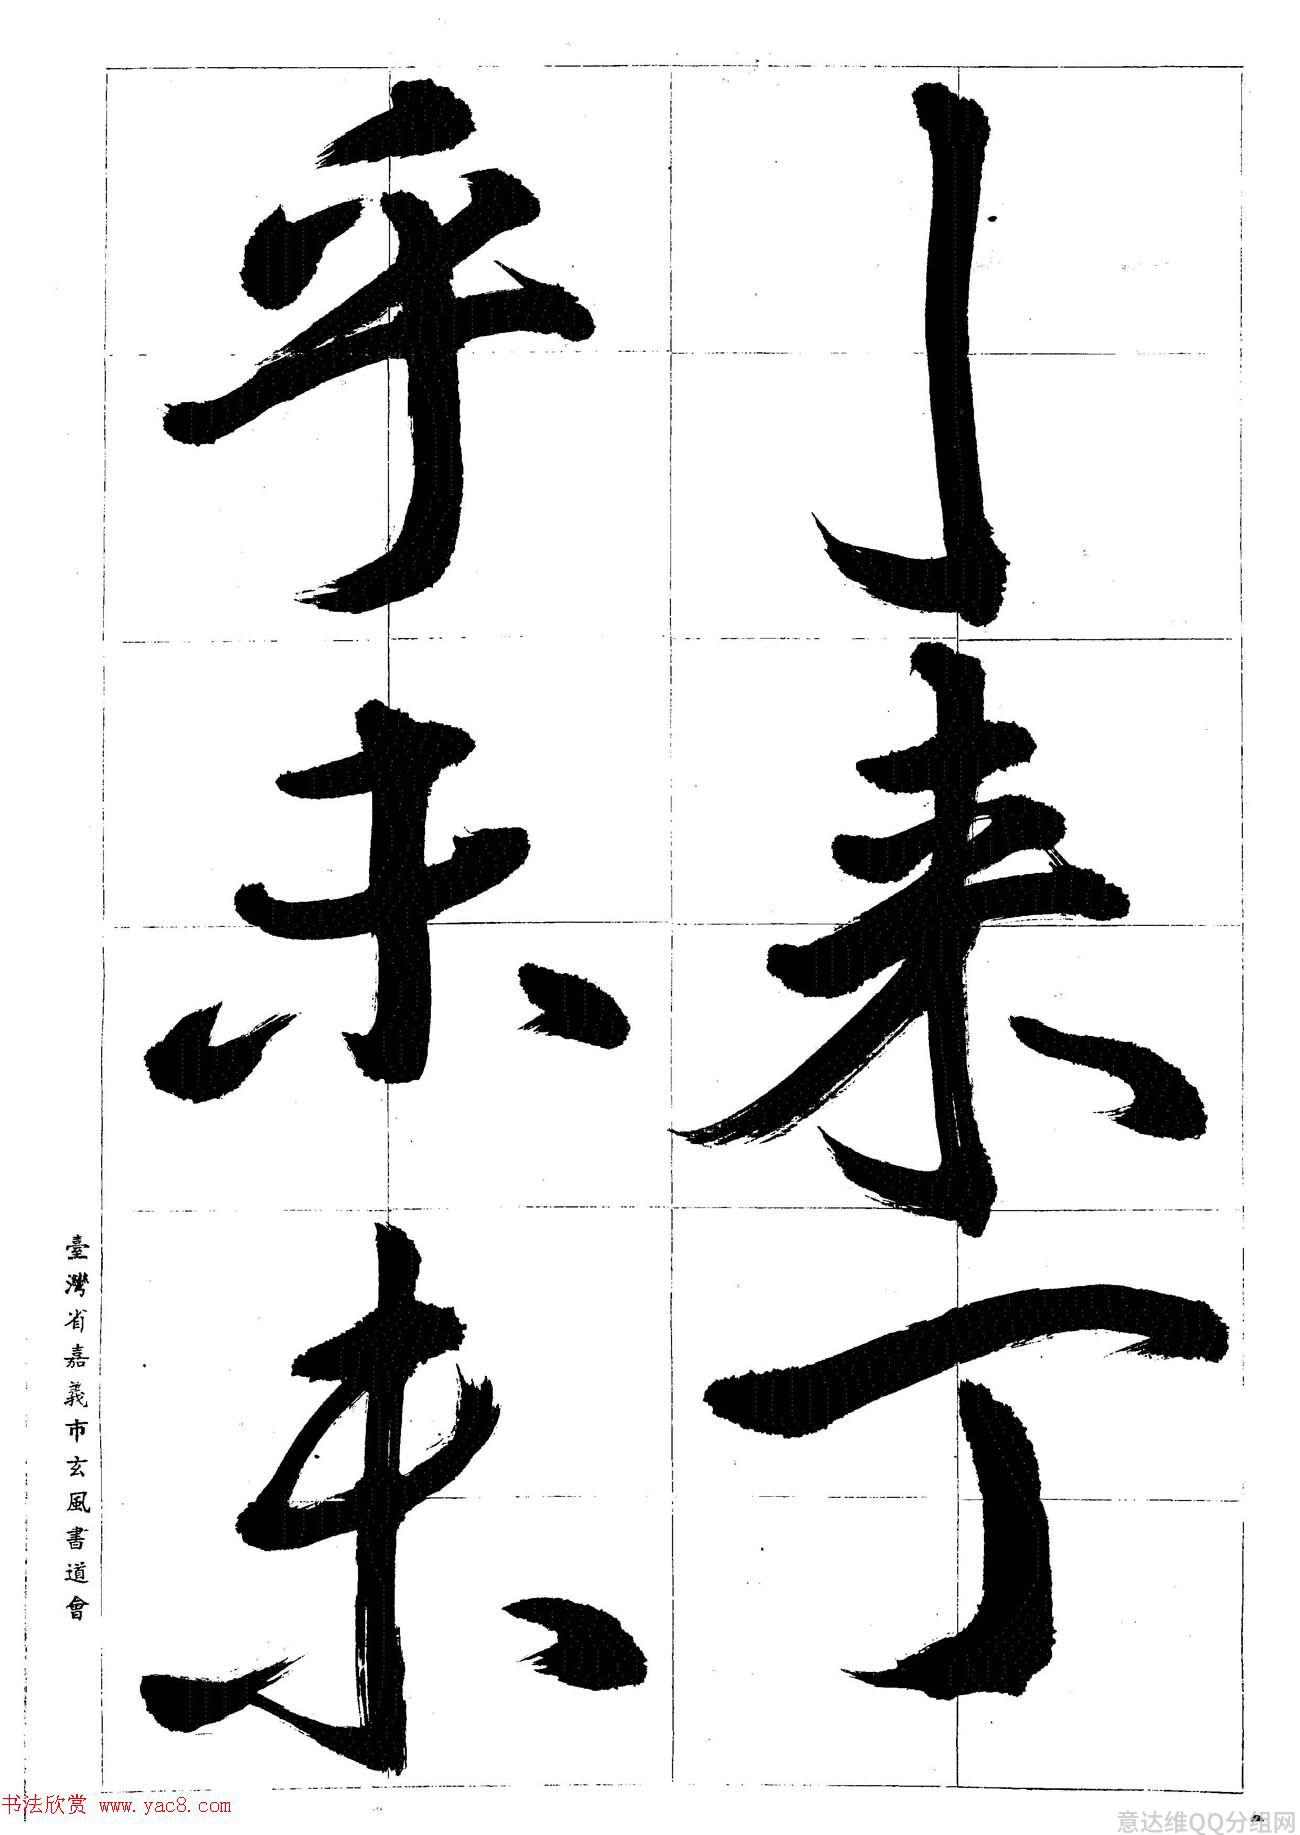 亅来丁
乎未未
臺灣省嘉義市玄風書道會
书法欣赏 www.yac8.com
意达维QQ分组网